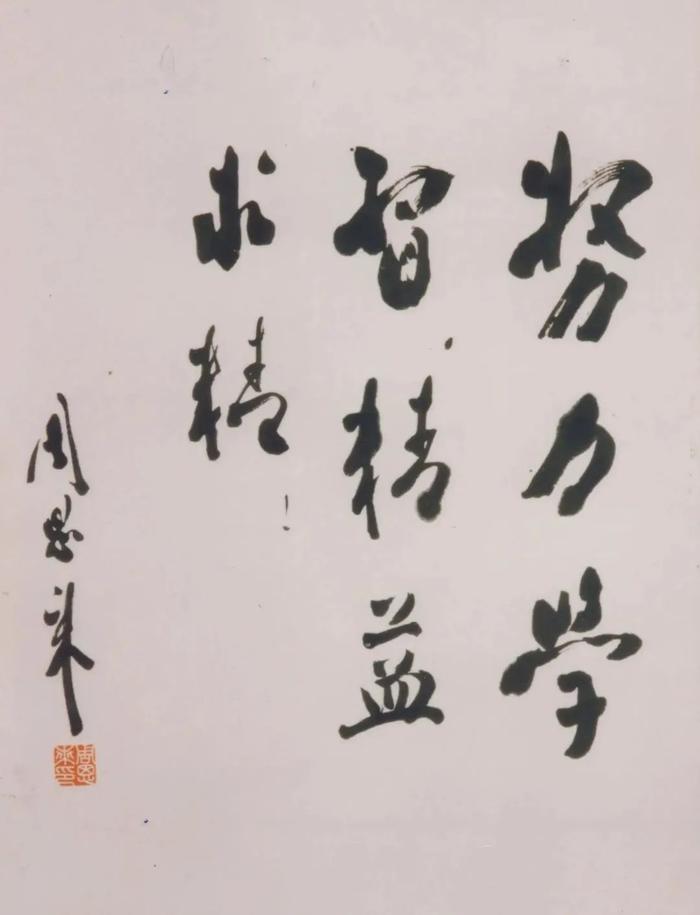 努力学
習精益
求精！
周恩来
周恩来印